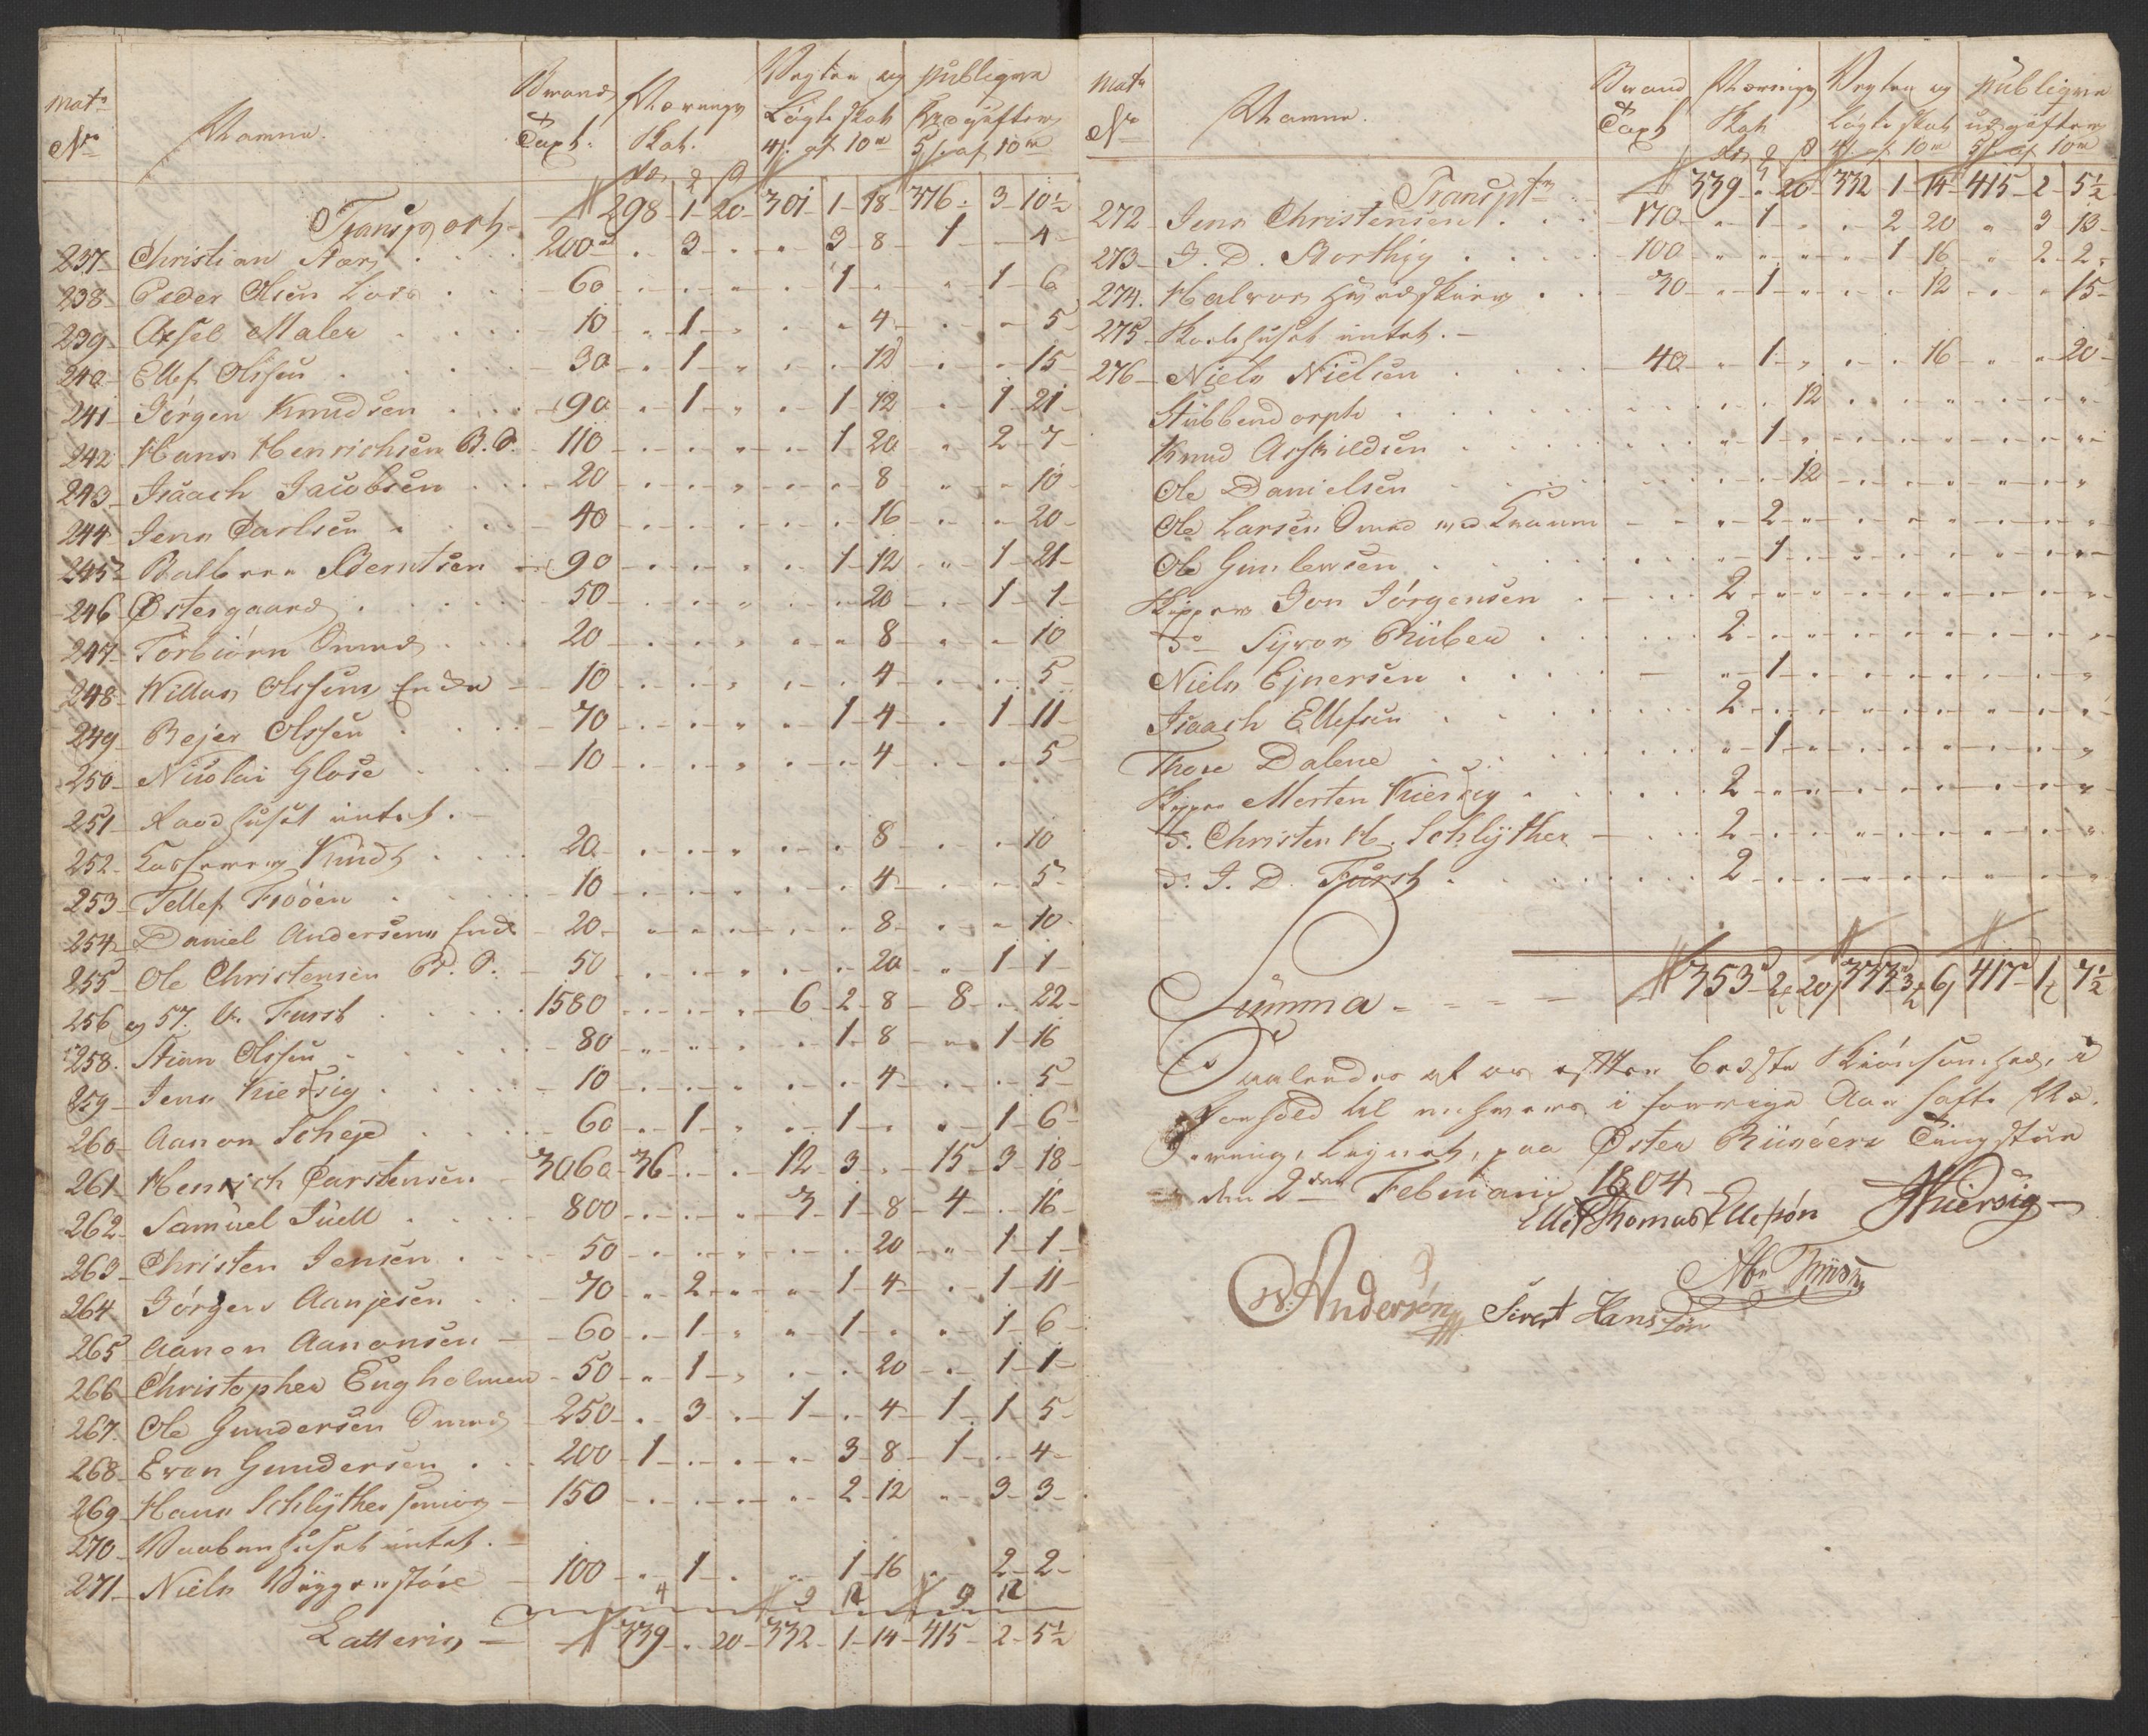 Matr No Navne. Brand Taxt. Nærings Skat. Vægter og Løgte skat 4 s. af 10 rd publique Udgifter 5 s. af 10 rd
Transport 298 1 20 301 1 18 376 3 10½
237 Christian 200 3 3 8 1 4
238 Peder Olsen 60 1 1 6
239 Axsel Maler 10 1 4 5
240 Ellef Olsen 30 1 12 15
241 Jørgen Knudsen 90 1 1 12 1 21
242 Hans Henrichsen B. S. 110 1 20 2 7
243 Isaach Jacobsen 20 8 10
244 Jens Carlsen 40 16 20
245 Berntsen 90 1 12 1 21
246 Østergaard 50 20 1 1
247 Torbiørn Smed 20 8 10
248 Willas Olsens Enke 10 4 5
249 Rejer Olsen 70 1 4 1 11
250 Nicolai Glose 10 4 5
251 Raadhuset intet.
252 20 8 10
253 Tellef Frøøen 10 4 5
254 Daniel Andersens Enke 20 8 10
255 Ole Christensen B. S. 50 20 1 1
256 og 57. Furst 1580 6 2 8 8 22
258. Stian Olsen 80 1 8 1 16
259 Jens Kiersig 10 4 5
260 Aanon Scheje 60 1 1 1 6
261 Henrich Carstensen 3060 36 12 3 15 3 18
262 Samuel Juell 800 3 1 8 4 16
263 Christen Jensen 50 20 1 1
264 Jørgen Aanjesen 70 2 1 4 1 11
265 Aanon Aanonsen 60 1 1 1 6
266 Christopher Engholmen 50 1 20 1 1
267 Ole Gundersen Smed 250 3 1 4 1 1 5
268 Even Gundersen 200 1 3 8 1 4
269 Hans Schlÿther senior 150 2 12 3 3
270 Vaabenhuset intet.
271 Niels 100 1 1 16 2 2
4 9 12 9 12
Latteris 339 20 332 1 14 415 2 5½
Matr No Navne. Brand Taxt Nærings Skat Vægter og Løgte skat 4 s. af 10 rd publique udgifter 5 s. af 10 rd
Transpt 339 20 332 1 14 415 2 5½
272 Jens Christensen 170 1 2 20 3 13
273 J. D. 100 1 16 2 2
274. Halvor 30 1 12 15
275 intet.
276 Niels Nielsen 40 1 16 20
Stubbendorph 12
Knud Asskildsen 1
Ole Danielsen 12
Ole Larsen Smed 2
Ole Gunlewsen 1
Skipper Jon Jørgensen 2
Do Syver Rüber 2
Niels Ejnersen 1
Isaach Ellefsen 2
Thore Dalene 1
Skipper Morten Kiersig 2
Do. Christen H. Schlÿther 2
Do. J. D. Furst 2
Summa 353 2 20 333 3 6 417 1 7½
Saaledes af os efter bedste Skiønsomhed, i
Forhold til enhvers i forrige Aar hafte Næ-
ring, lignet, paa Øster Riisøers Tingstue
den 2den Februarii 1804
Ellef Thomas Ellefsøn Kiersig
Andersøn Sivert Hanssøn